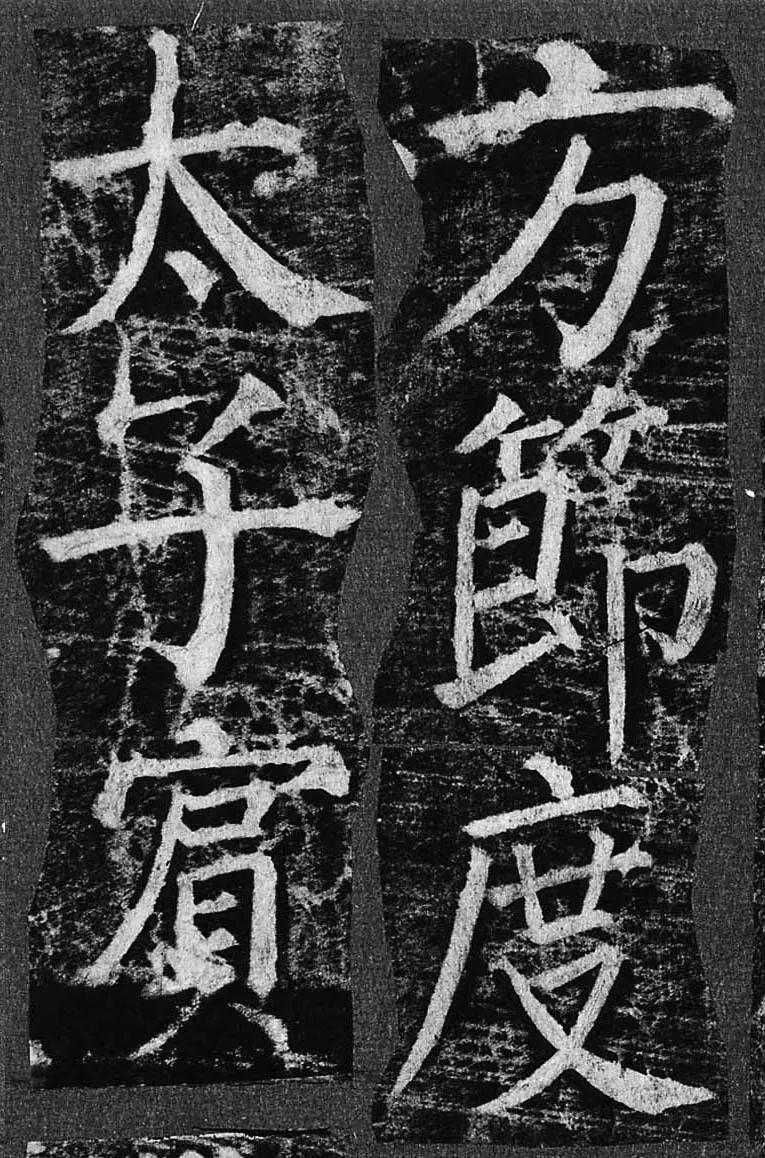 方節度
太子賓